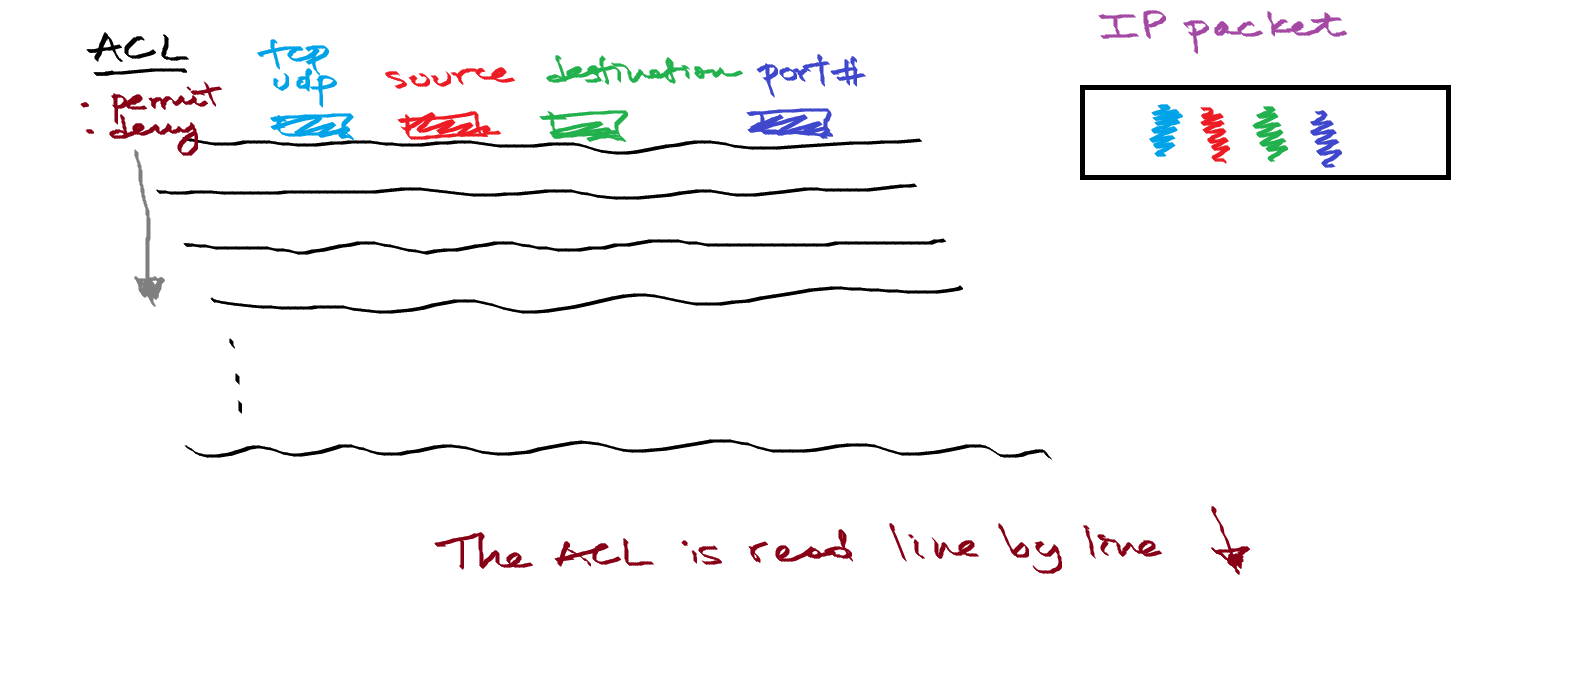 ACL
• permit
• deny
tcp
udp
source
destination
port#
IP packet
The ACL is read line by line